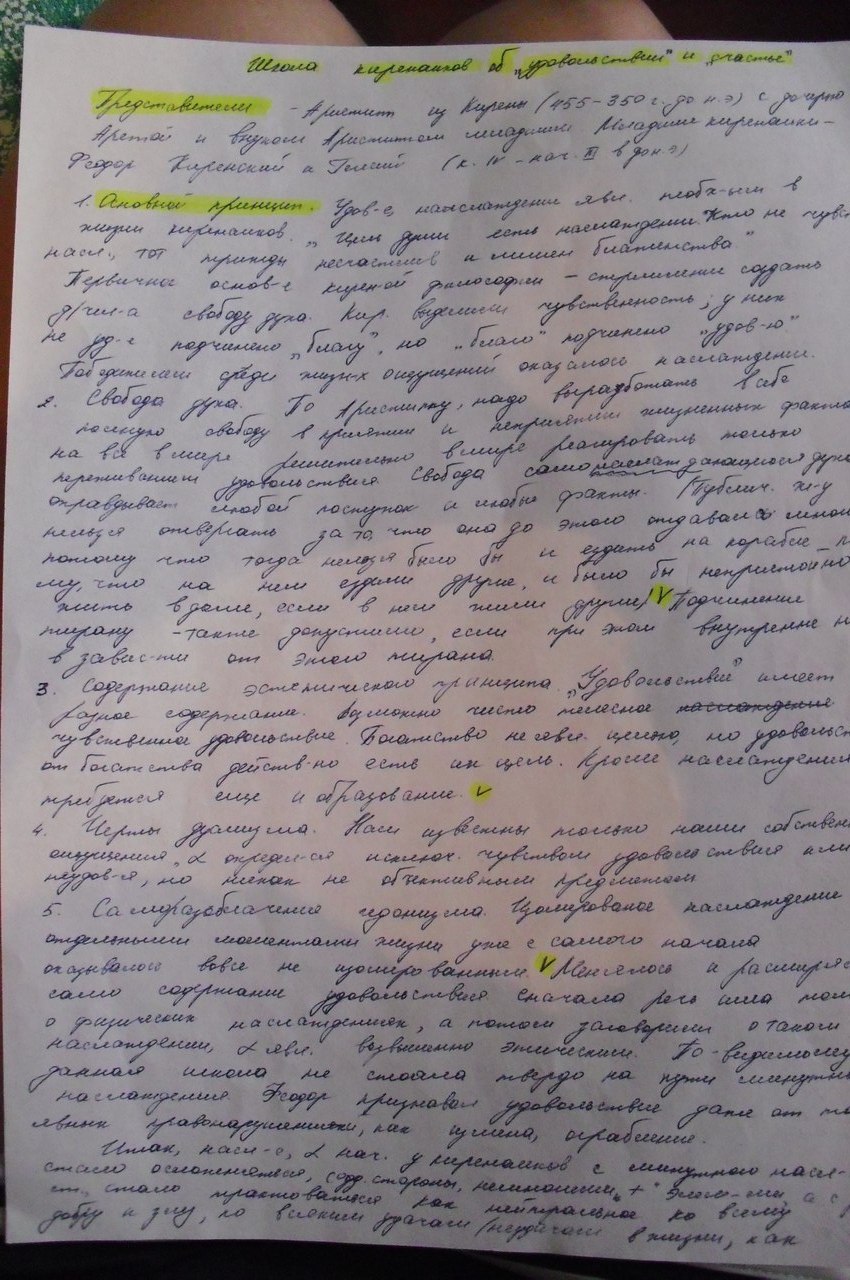 Школа киренаиков об „удовольствии" и „счастье"
Представители - Аристипп из Кирены (455-350 г. до н.э) с дочерью
Аретой и внуком Аристиппом младшим. Младшие киренаики -
Феодор Киренский и Гегесий (к. IV - нач. III в до н.э)
1. Основной принцип. Удов-е, наслаждение явл. необх-ым в
жизни киренаиков. „Цель души есть наслаждение. Кто не чувс
насл., тот трижды несчастлив и лишен блаженства"
Первичная основ-е философии - стремление создать
д/чел-а свободу духа. Кир. выделяли чувственность, у них
не уд-е подчинено „благу", но „благо" подчинено „удов-ю"
Победителем среди жизн-х ощущений оказалось наслаждение.
2. Свобода духа. По Аристиппу, надо выработать в себе
полную свободу в приятии и неприятии жизненных факто
на всё в мире решительно в мире реагировать только
переживанием удовольствия. Свобода самонаслаждающегося духа
оправдывает любой поступок и любые факты. (Публич. ж-у
нельзя отвергать за то, что она до этого отдавалась мног
потому что тогда нельзя было бы и ездить на корабле п
му, что на нем ездили другие, и было бы непристойно
жить в доме, если в нем жили другие) V Подчинение
тирану - также допустимо, если при этом внутренне н
в завис-ти от этого тирана.
3. Содержание эстетического принципа. „Удовольствие" имеет
разное содержание. Возможно чисто телесное наслаждение
чувственное удовольствие. Богатство не явл. целью, но удовольст
от богатства действ-но есть их цель. Кроме наслаждения
требуется еще и образование. V
4. Черты дуализма. Нам известны только наши собствен
ощущения, α опред-ся исключ. чувством удовольствия или
неудов-я, но никак не объективными предметами
5. Саморазоблачение гедонизма. Изолированое наслаждение
отдельными моментами жизни уже с самого начала
оказывалось вовсе не изолированным. V Менялось и расширял
само содержание удовольствия. Сначала речь шла тол
о физических наслаждениях, а потом заговорили о таком
наслаждении, α явл. возвышенно этическим. По-видимому
данная школа не стояла твердо на пути минутно
наслаждения. Феодор признавал удовольствие даже от та
явных правонарушений, как измена, ограбление.
Итак, насл-е, α нач. у киренаиков с минутного насл-
стало осложняться, с одд. стороны, немногими „+" а с
ст. стало трактоваться как нейтральное ко всему
добру и злу, ко всяким удачам/неудачам в жизни, как